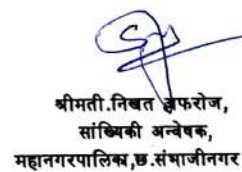 श्रीमती.निखत अफरोज,
सांख्यिकी अन्वेषक,
महानगरपालिका,छ.संभाजीनगर